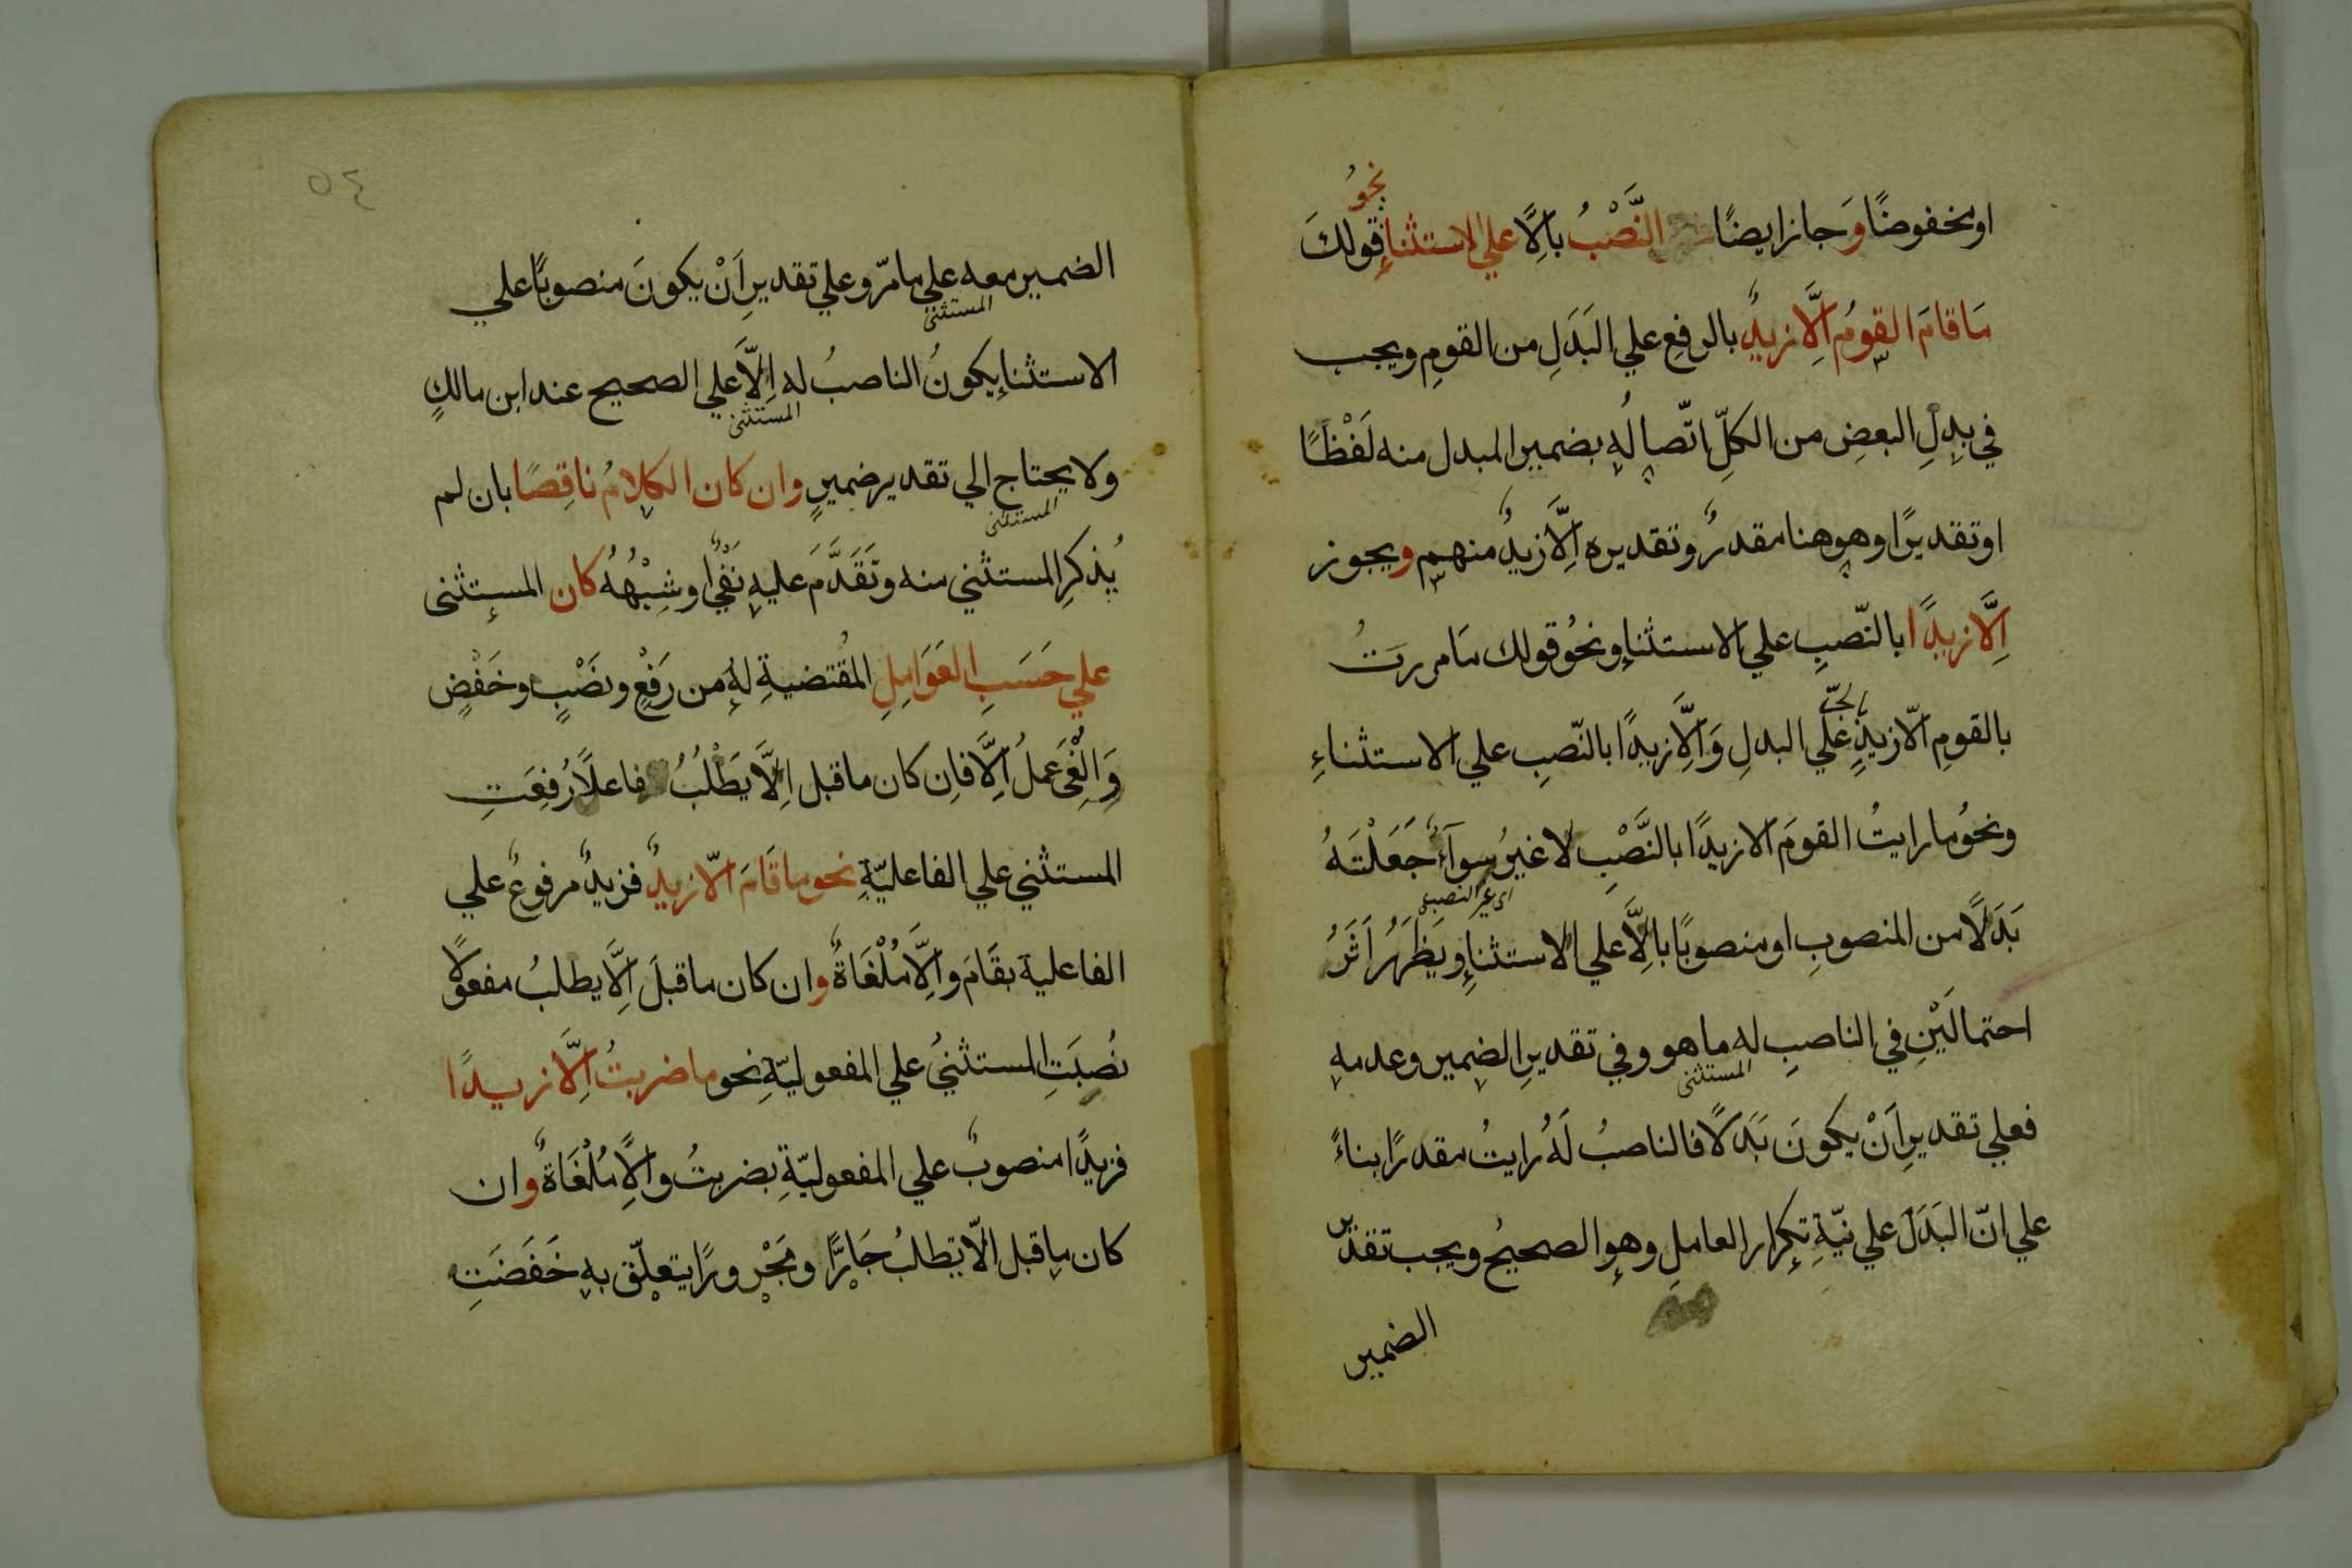 او مخفوضًا وَجاز ايضًا النَّصْبُ بالِاَّ علي الاستثناءِ نحوُ قولكَ
مَا قامَ القومُ اِلَّا زيدٌ بالرفعِ علي البَدَلِ من القومِ ويجب
في بدلِ البعضِ من الكلِّ اتّصالُهِ بضمير المبدل منه لَفْظًا
او تقديرًا وهو هنا مقدرٌ وتقديره اِلَّا زيدٌ منهم ويجوز
اِلَّا زيدًا بالنّصبِ علي الاستثناءِ ونحوُ قولك مَا مررتُ
بالقومِ الّا زيدٍ بالجرّ عَلي البدلِ وَالَّا زيدًا بالنّصبِ علي الاستثناءِ
ونحوُ ما رايتُ القومَ الا زيدًا بالنَّصْبِ لا غيرُ سوآءٌ جَعَلْتَهُ
اى غير النصب
بَدَلًا من المنصوبِ او منصوبًا بالِاَّ علي الاستثناءِ ويَظهَرُ اَثَرُ
احتمالَيْنِ في الناصبِ له ما هو وفي تقديرِ الضمير وعدمهِ
المستثنى
فعلي تقديرِ اَنْ يكونَ بَدَلًا فالناصبُ لَهُ رايتُ مقدرًا بناءً
علي انّ البَدَلَ علي نيّةِ تكرار العاملِ وهو الصحيحُ ويجب تقدير
الضمير
٥٤
الضمير معه علي ما مرّ وعلي تقديرِ اَنْ يكونَ منصوبًا علي
المستثنى
الاستثناءِ يكونُ الناصبُ له اِلَّا علي الصحيح عند ابن مالكٍ
المستثنى
ولا يحتاج الي تقدير ضميرٍ وان كان الكلامُ ناقِصًا بان لم
المستثنى
يُذكرِ المستثني منه وتَقَدَّمَ عليهِ نَفْيٌ اَو شِبْهُهُ كان المستثنى
علي حَسَبِ العَوَامِلِ المُقتضيةِ لهُ من رَفعٍ ونَصْبٍ وخَفْضٍ
وَاُلْغِيَ عَملُ اِلَّا فاِن كان ما قبل اِلَّا يَطْلُبُ فاعلًا رُفِعَتِ
المستثني علي الفاعليّةِ نحو ما قَامَ الّا زيدٌ فزيدٌ مرفوعٌ علي
الفاعلية بقَامَ واِلَّا مُلْغَاةٌ وان كان ما قبلَ اِلَّا يطلبُ مفعولًا
نُصِبَتِ المستثنيُ علي المفعوليّةِ نحو ما ضربتُ اِلَّا زيدًا
فزيدًا منصوبٌ علي المفعوليّةِ بضربتُ والِاَّ مُلْغَاةٌ وان
كان ما قبل الّا يَطلبُ جَارًّا ومَجْرورًا يتعلّق بهِ خَفَضَتِ